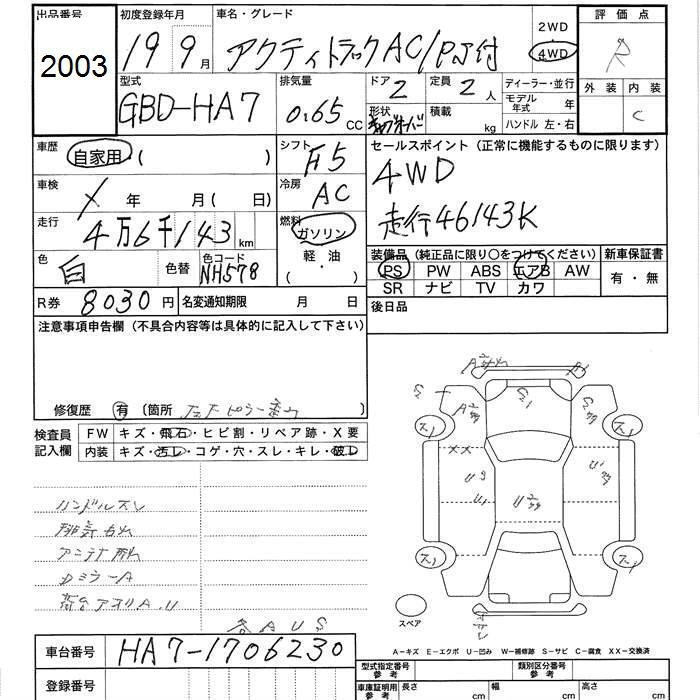 出品番号 初度登録年月 車名・グレード 2WD 評価点
2003 19 9月 アクティトラックAC/PS付 4WD R
型式 排気量 ドア 定員 ディーラー・並行 外装 内装
GBD-HA7 0.65 CC 2 2人 モデル年式 年 C
形状 積載 kg ハンドル 左・右
車歴 自家用 ( ) シフト F5 セールスポイント(正常に機能するものに限ります)
4WD
車検 X 年 月 ( 日) 冷房 AC
走行 4万6千143 km 燃料 ガソリン 走行46143K
軽・油
色 白 色替 色コード NH578 ( )
装備品(純正品に限り○をつけてください) 新車保証書
PS PW ABS エアB AW 有・無
SR ナビ TV カワ
R券 8030円 名変通知期限 月 日 後日品
注意事項申告欄(不具合内容等は具体的に記入して下さい)
修復歴 有 (箇所 )
検査員 FW キズ・飛石・ヒビ割・リペア跡・X要
記入欄 内装 キズ・汚レ・コゲ・穴・スレ・キレ・破レ
ハンドルスレ
アンテナ
A U S
スペア
A-キズ E-エクボ U-凹み W-補修跡 S-サビ C-腐食 XX-交換済
車台番号 HA7-1706230
型式指定番号 参考 類別区分番号 参考
登録番号 車庫証明用 参考 長さ cm 幅 cm 高さ cm